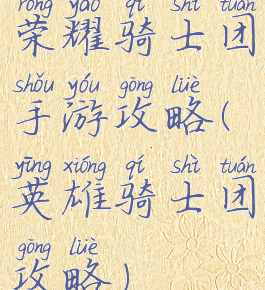 róng yào qí shì tuán
荣耀骑士团
shǒu yóu gōng lüè
手游攻略(
yīng xióng qí shì tuán
英雄骑士团
gōng lüè
攻略)